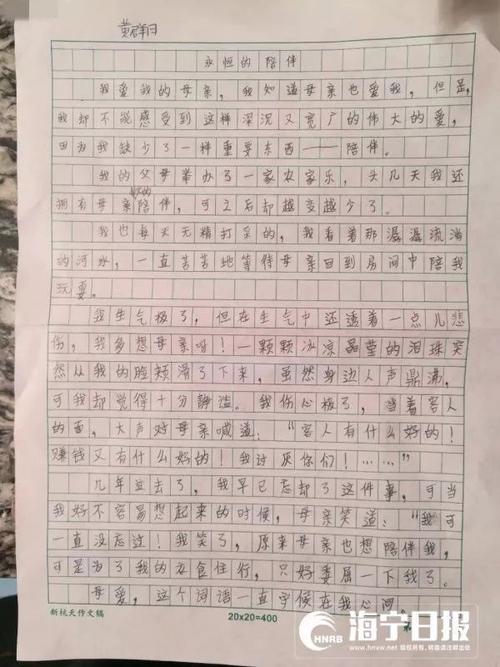 永恒的陪伴
我爱我的母亲，我知道母亲也爱我，但是，
我却不能感受到这种深沉又宽广的伟大的爱，
因为我缺少了一种重要东西——陪伴。
我的父母举办了一家农家乐，头几天我还
拥有母亲的陪伴，可之后却越变越少了。
我也每天无精打采的，我看着那潺潺流淌
的河水，一直苦苦地等待母亲回到房间中陪我
玩耍。
我生气极了，但在生气中还透着一点儿悲
伤，我多想母亲呀！一颗颗冰凉晶莹的泪珠突
然从我的脸颊滑了下来，虽然身边人声鼎沸，
可我却觉得十分静谧。我伤心极了，当着客人
的面，大声对母亲喊道：“客人有什么好的！
赚钱又有什么好的！我讨厌你们！……”
几年过去了，我早已忘却了这件事，可当
我好不容易想起来的时候，母亲笑道：“我可
一直没忘过！我笑了，原来母亲也想陪伴我，
可是为了我的衣食住行，只好委屈一下我了。
母爱，这个词语一直守候在我心间。
新杭天作文稿
20×20=400
HNRB 海宁日报